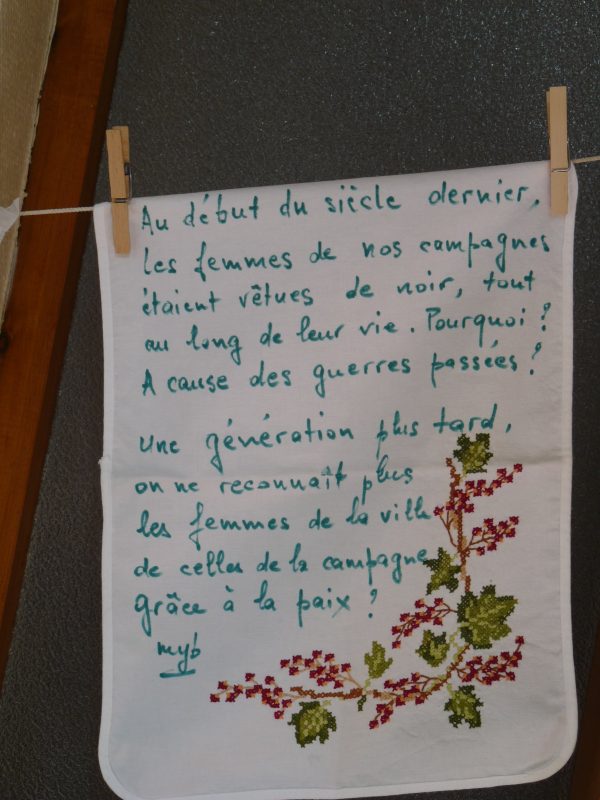 Au début du siècle dernier,
les femmes de nos campagnes
étaient vêtues de noir, tout
au long de leur vie. Pourquoi ?
A cause des guerres passées ?
Une génération plus tard,
on ne reconnaît plus
les femmes de la ville
de celles de la campagne
grâce à la paix ?
myb